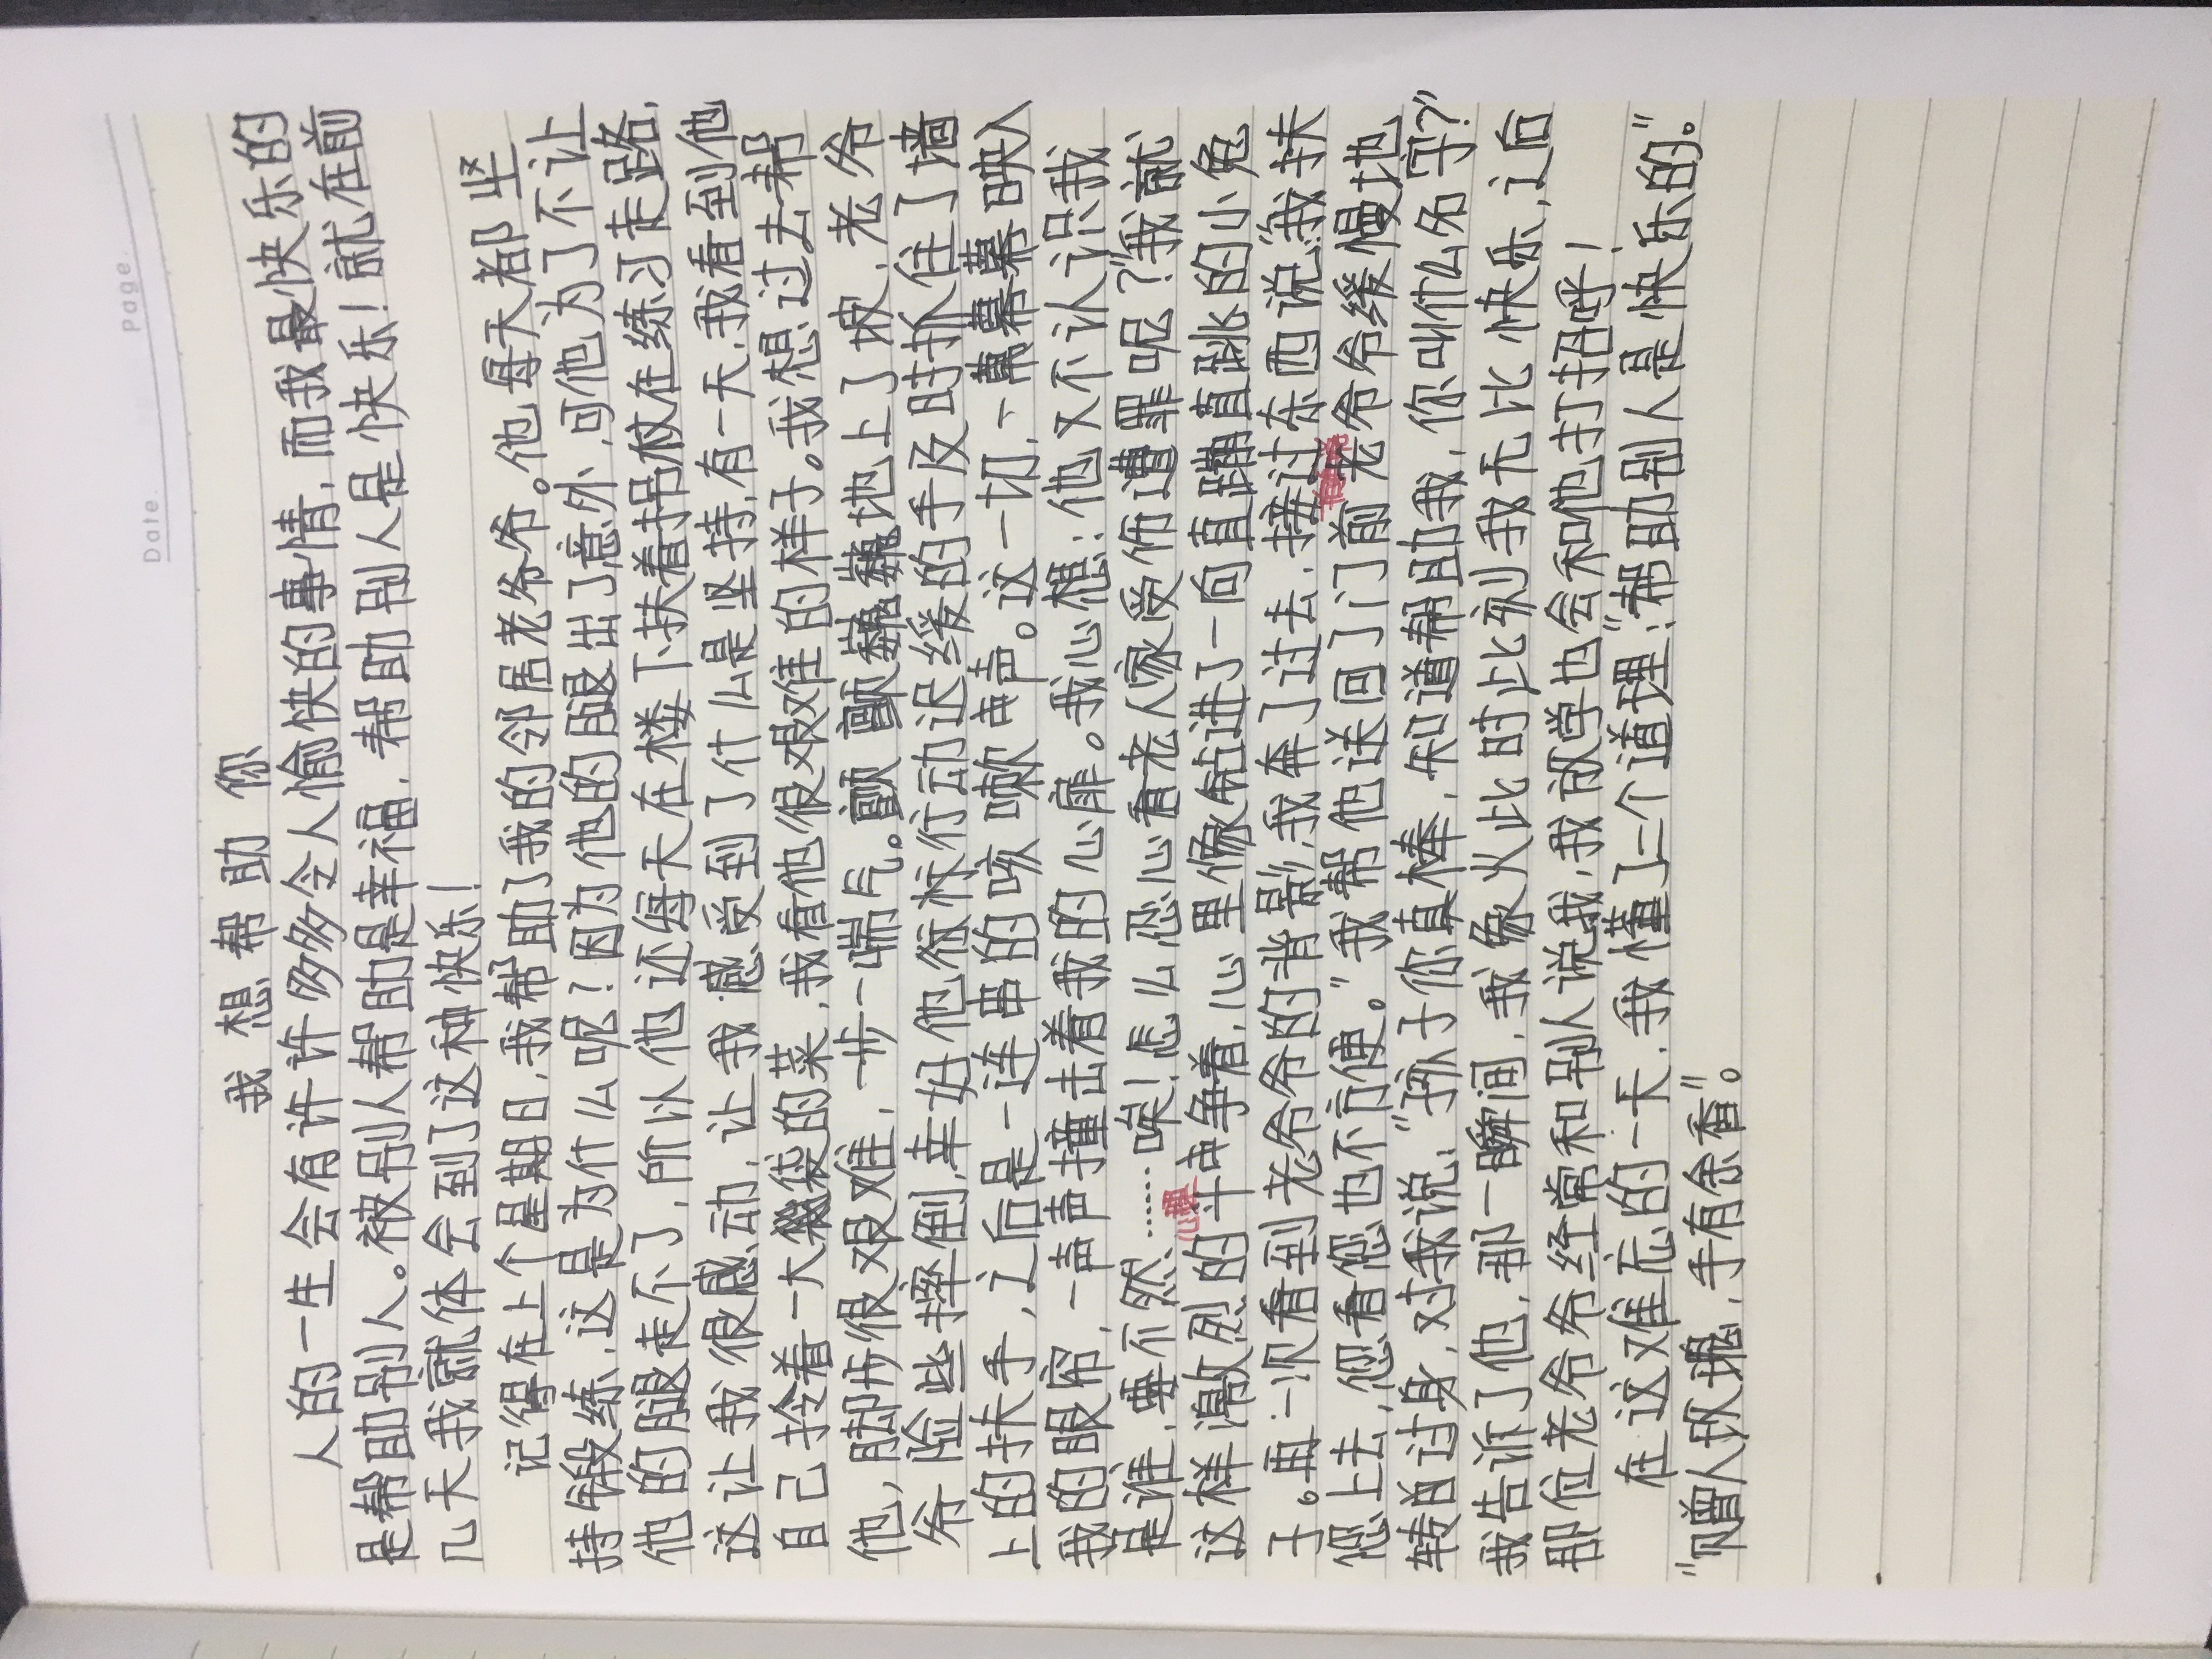 Date.
Page.
我想帮助你
人的一生会有许许多多令人愉快的事情，而我最快乐的
是帮助别人。被别人帮助是幸福，帮助别人是快乐！就在前
几天我就体会到了这种快乐！
记得在上个星期日，我帮助了我的邻居老爷爷。他每天都坚
持锻练，这是为什么呢？因为他的腿出了意外，可他为了不让
他的腿走不了，所以他还每天在楼下扶着拐杖在练习走路，
这让我很感动，让我感受到了什么是坚持，有一天，我看到他
自己拎着一大袋的菜，我看他很艰难的样子。我想过去帮
他，脚步很艰难，一步一喘气。颤颤巍巍地上了坡，老爷
爷险些摔倒，幸好他依标行动迟缓的手及时抓住了墙
上的扶手，之后是一连串的咳嗽声。这一切，一幕幕映入
我的眼帘，一声声撞击着我的心扉。我心想：他又不认识我
是谁，要不然……唉！怎么忍心看老人家受伤遭罪呢？”我就
这样激烈的斗争着，心里像钻进了一向直蹦直跳的小兔
子。再一次看到老爷爷的背影，我奔了过去，接过东西说“我扶
您上去，您看您也不方便。”我帮他送回了门前老爷爷缓慢地
转过身，对我说：“孩子你真棒，知道帮助我，你叫什么名字？”
我告诉了他，那一瞬间，我象火此时比刻我无比快乐，之后
那位老爷爷经常和别人说我，我放学也会和他打招呼！
在这难忘的一天，我懂了一个道理：“帮助别人是快乐的。”
“赠人玫瑰，手有余香”。